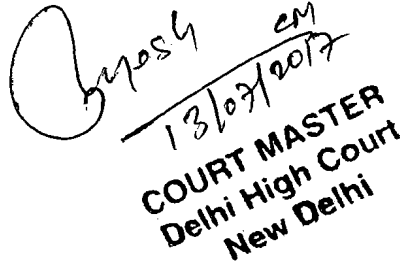 CM
13/07/2017
COURT MASTER
Delhi High Court
New Delhi